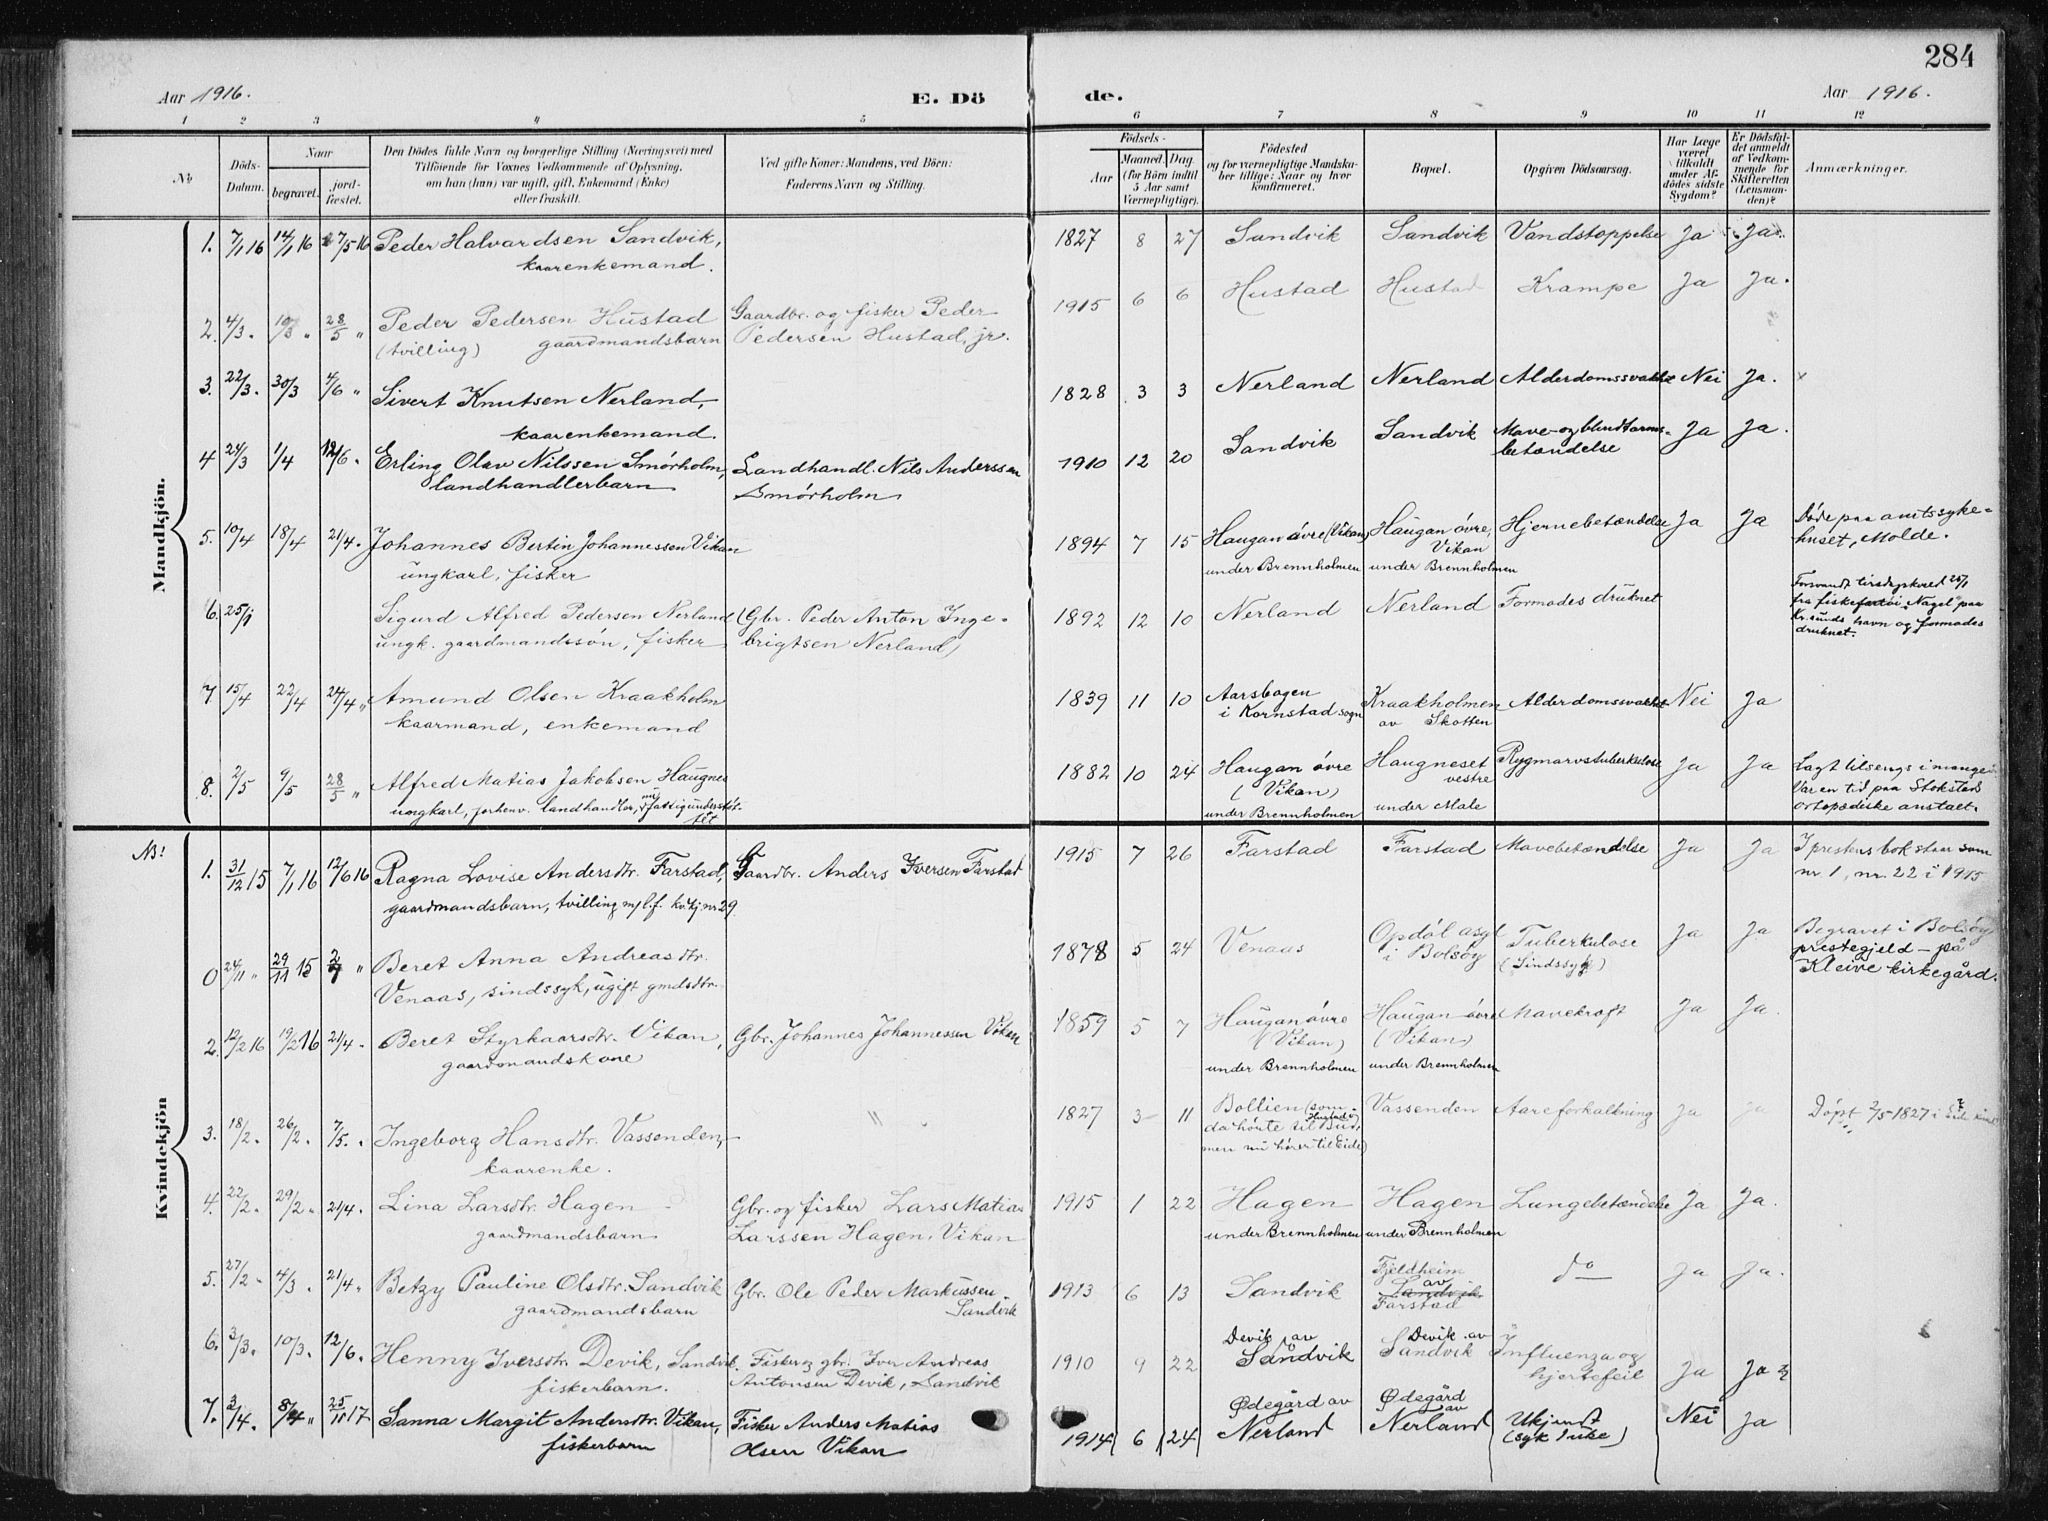 284
Aar 1916.
E. Dö de.
Aar 1916.
1 2 3 4 5 6 7 8 9 10 11 12
No
Döds-Datum.
Naar
begravet.
jord-fæstet.
Den Dödes fulde Navn og borgerlige Stilling (Næringsvei) med
Tilföiende for Voxnes Vedkommende af Oplysning,
om han (hun) var ugift, gift, Enkemand (Enke)
eller fraskilt.
Ved gifte Koner: Mandens, ved Börn:
Faderens Navn og Stilling.
Födsels-
Aar
Maaned. Dag.
(for Börn indtil
5 Aar samt
Værnepligtige).
Födested
og for værnepligtige Mandska-
ber tillige: Naar og hvor
konfirmeret.
Bopæl.
Opgiven Dödsaarsag.
Har Læge
været
tilkaldt
under Af-
dödes sidste
Sygdom?
Er Dödsfal-
det anmeldt
af Vedkom-
mende for
Skifteretten
(Lensman-
den)?
Anmærkninger.
Mandkjön.
1. 7/1 16 14/1 16 27/5 16 Peder Halvardsen Sandvik, 1827 8 27 Sandvik Sandvik Vandstoppelse Ja Ja.
kaarenkemand.
2. 4/3. 10/3 " 28/5 " Peder Pedersen Hustad Gaardbr. og fisker Peder 1915 6 6 Hustad Hustad Krampe Ja Ja.
(tvilling) gaardmandsbarn Pedersen Hustad, jr.
3. 22/3. 30/3 4/6 " Sivert Knutsen Nerland, 1828 3 3 Nerland Nerland Alderdomssvakhet Nei Ja.
kaarenkemand.
4 24/3 1/4 12/6. Erling Olav Nilssen Smørholm, Landhandl. Nils Anderssen 1910 12 20 Sandvik Sandvik Mave- og blindtarms- Ja Ja.
landhandlerbarn Smørholm betændelse
5. 10/4 18/4 21/4. Johannes Bertin Johannessen Vikan 1894 7 15 Haugan øvre (Vikan) Haugan øvre, Hjernebetændelse Ja Ja Døde paa amtssyke-
ungkarl, fisker under Brennholmen Vikan under Brennholmen huset, Molde.
6. 25/1 Sigurd Alfred Pedersen Nerland (Gbr. Peder Anton Inge- 1892 12 10 Nerland Nerland Formodes druknet Forsvandt tirsdagskveld 25/1
ungk. gaardmandssøn, fisker brigtsen Nerland) fra fiskefartøi "Nagel" paa
Kr.sunds havn og formodes
druknet.
7. 15/4 22/4 24/4 " Amund Olsen Kraakholm 1839 11 10 Aarsbogen Kraakholmen Alderdomssvakhet Nei Ja
kaarmand, enkemand i Kornstad sogn av Skotten
8. 2/5 9/5 28/5 " Alfred Matias Jakobsen Haugnes 1882 10 24 Haugan øvre Haugneset Rygmarvstuberkulose Ja Ja Lagt tilsengs i mange
ungkarl, forhenv. landhandler, nu fattigunderstøt- (Vikan) vestre Var en tid paa Stoksteds
tet under Brennholmen under Male ortopædiske anstalt.
Kvindekjön
NB!
1. 31/12 15 7/1 16 12/6 16 Ragna Lovise Andersdtr. Farstad, Gaardbr. Anders Iversen Farstad 1915 7 26 Farstad Farstad Mavebetændelse Ja Ja I prestens bok staar som
gaardmandsbarn, tvilling m/l.f. kvkj nr 29 nr. 1, nr. 22 i 1915
0 24/11 " 29/11 15 2/7 " Beret Anna Andreasdtr. 1878 5 24 Venaas Opdøl asyl Tuberkulose Ja Ja Begravet i Bolsøy
Venaas, sindssyk, ugift gmdsdtr. i Bolsøy (Sindssyg) prestegjeld - på
Kleive kirkegård.
2. 12/2 16 19/2 16 21/4. Beret Styrkaarsdtr. Vikan, Gbr. Johannes Johannessen Vikan 1859 5 7 Haugan øvre Haugan øvre Mavekræft Ja Ja.
gaardmandskone (Vikan) (Vikan)
under Brennholmen under Brennholmen
3. 18/2. 26/2. 7/5. Ingeborg Hansdtr. Vassenden, " 1827 3 11 Bollien (som Vassenden Aareforkalkning Ja Ja Døpt 2/5 1827 i Eide kirke
kaarenke. Hustad i
da hørte til Bud,
men nu hører til Eide)
4. 22/2. 29/2. 21/4. Lina Larsdtr. Hagen Gbr. og fisker Lars Matias 1915 1 22 Hagen Hagen Lungebetændelse Ja Ja.
gaardmandsbarn Larssen Hagen, Vikan under Brennholmen under Brennholmen
5. 27/2 4/3. 21/4. Betzy Pauline Olsdtr. Sandvik Gbr. Ole Peder Markussen 1913 6 13 Sandvik Fjeldheim do Ja Ja.
gaardmandsbarn Sandvik av Sandvik
Farstad
6. 3/3. 10/3. 12/6. Henny Iversdtr. Devik, Sandvik. Fisker og gbr. Iver Andreas 1910 9 22 Devik av Devik av Influenza og Ja Ja
fiskerbarn. Antonsen Devik, Sandvik Sandvik Sandvik hjertefeil
7. 3/4. 8/4 " 25/11 17 Sanna Margit Andersdtr. Vikan, Fisker Anders Matias 1914 6 24 Ødegård av Ødegård av Ukjendt Nei Ja
fiskerbarn Olsen Vikan Nerland Nerland (syk 1 uke)